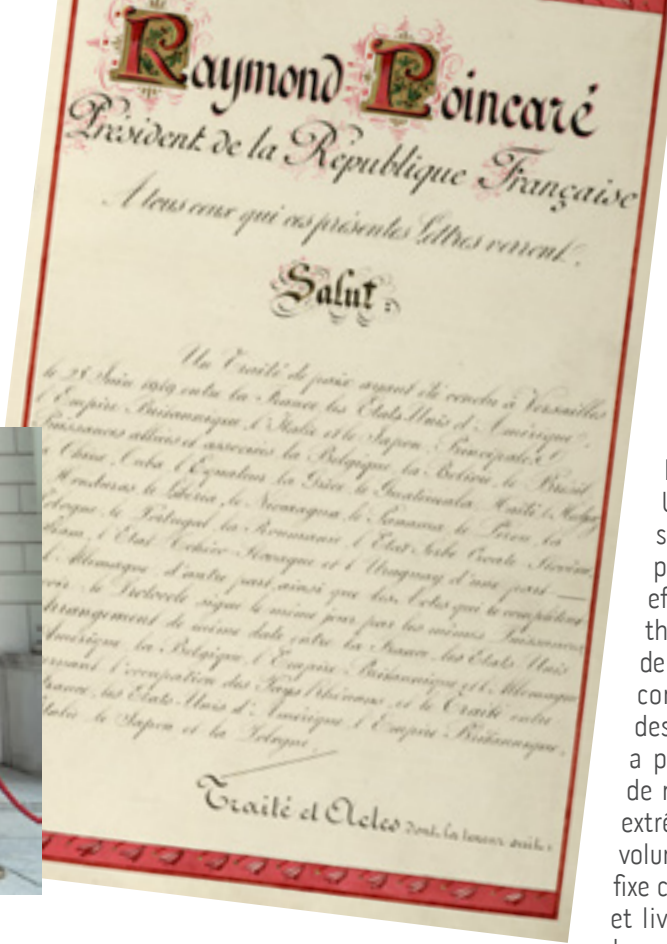 Raymond Poincaré
Président de la République Française
A tous ceux qui ces présentes Lettres verront.
Salut :
Un Traité de paix ayant été conclu à Versailles
le 28 Juin 1919 entre la France, les Etats Unis d'Amérique,
l'Empire Britannique, l'Italie et le Japon, Principales
Puissances alliées et associées la Belgique, la Bolivie, le Brésil
la Chine, Cuba, l'Equateur, la Grèce, le Guatemala, Haïti,
Honduras, le Libéria, le Nicaragua, le Panama, le Pérou, la
Pologne, le Portugal, la Roumanie, l'Etat Serbe Croate Slovène,
l'Etat Tchéco-Slovaque et l'Uruguay d'une part
l'Allemagne d'autre part, ainsi que les Actes qui le complètent
le Protocole signé le même jour par les mêmes Puissances
Arrangement de même date entre la France, les Etats Unis
d'Amérique, la Belgique, l'Empire Britannique et l'Allemagne
l'occupation des Pays Rhénans, et le Traité entre
France, les Etats-Unis d'Amérique, l'Empire Britannique,
l'Italie, le Japon et la Pologne,
Traité et Actes dont la teneur suit :
th
de
des
a p
de
fixe c
et liv